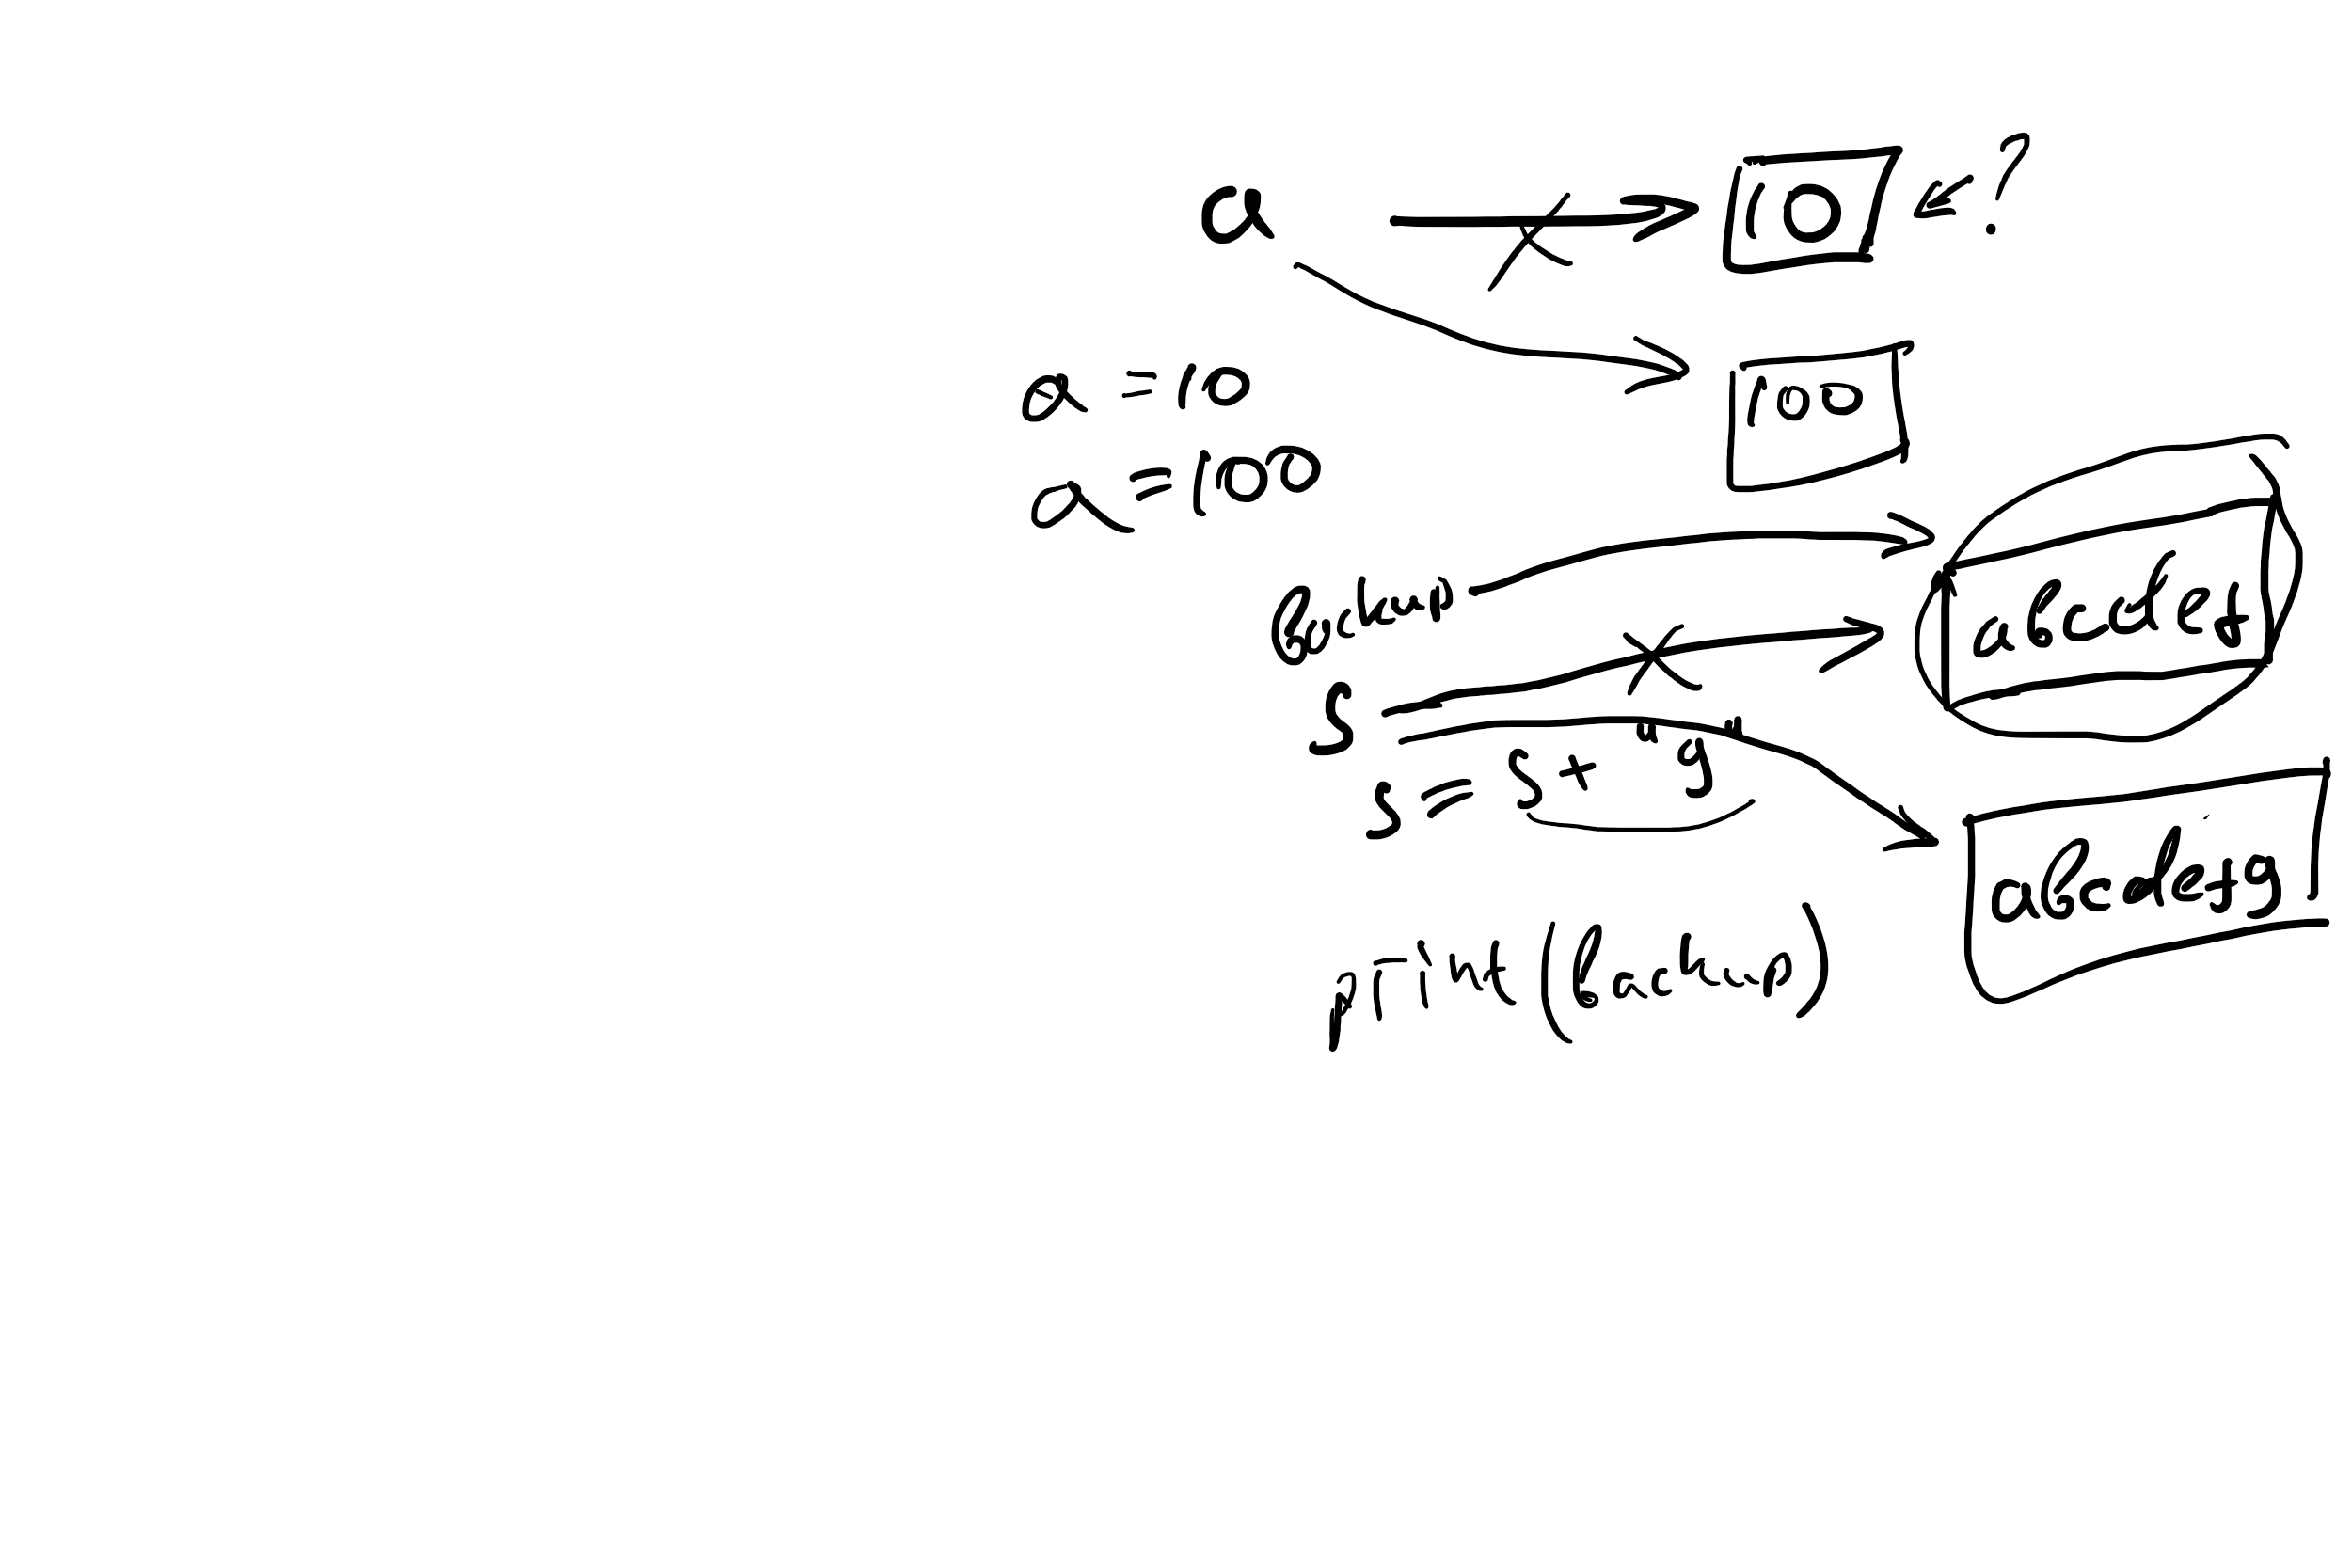 a 10 ?
a = 10 100
a = 100
backup abcdef
s
s = s + "g"
abcdefg
print(backup)